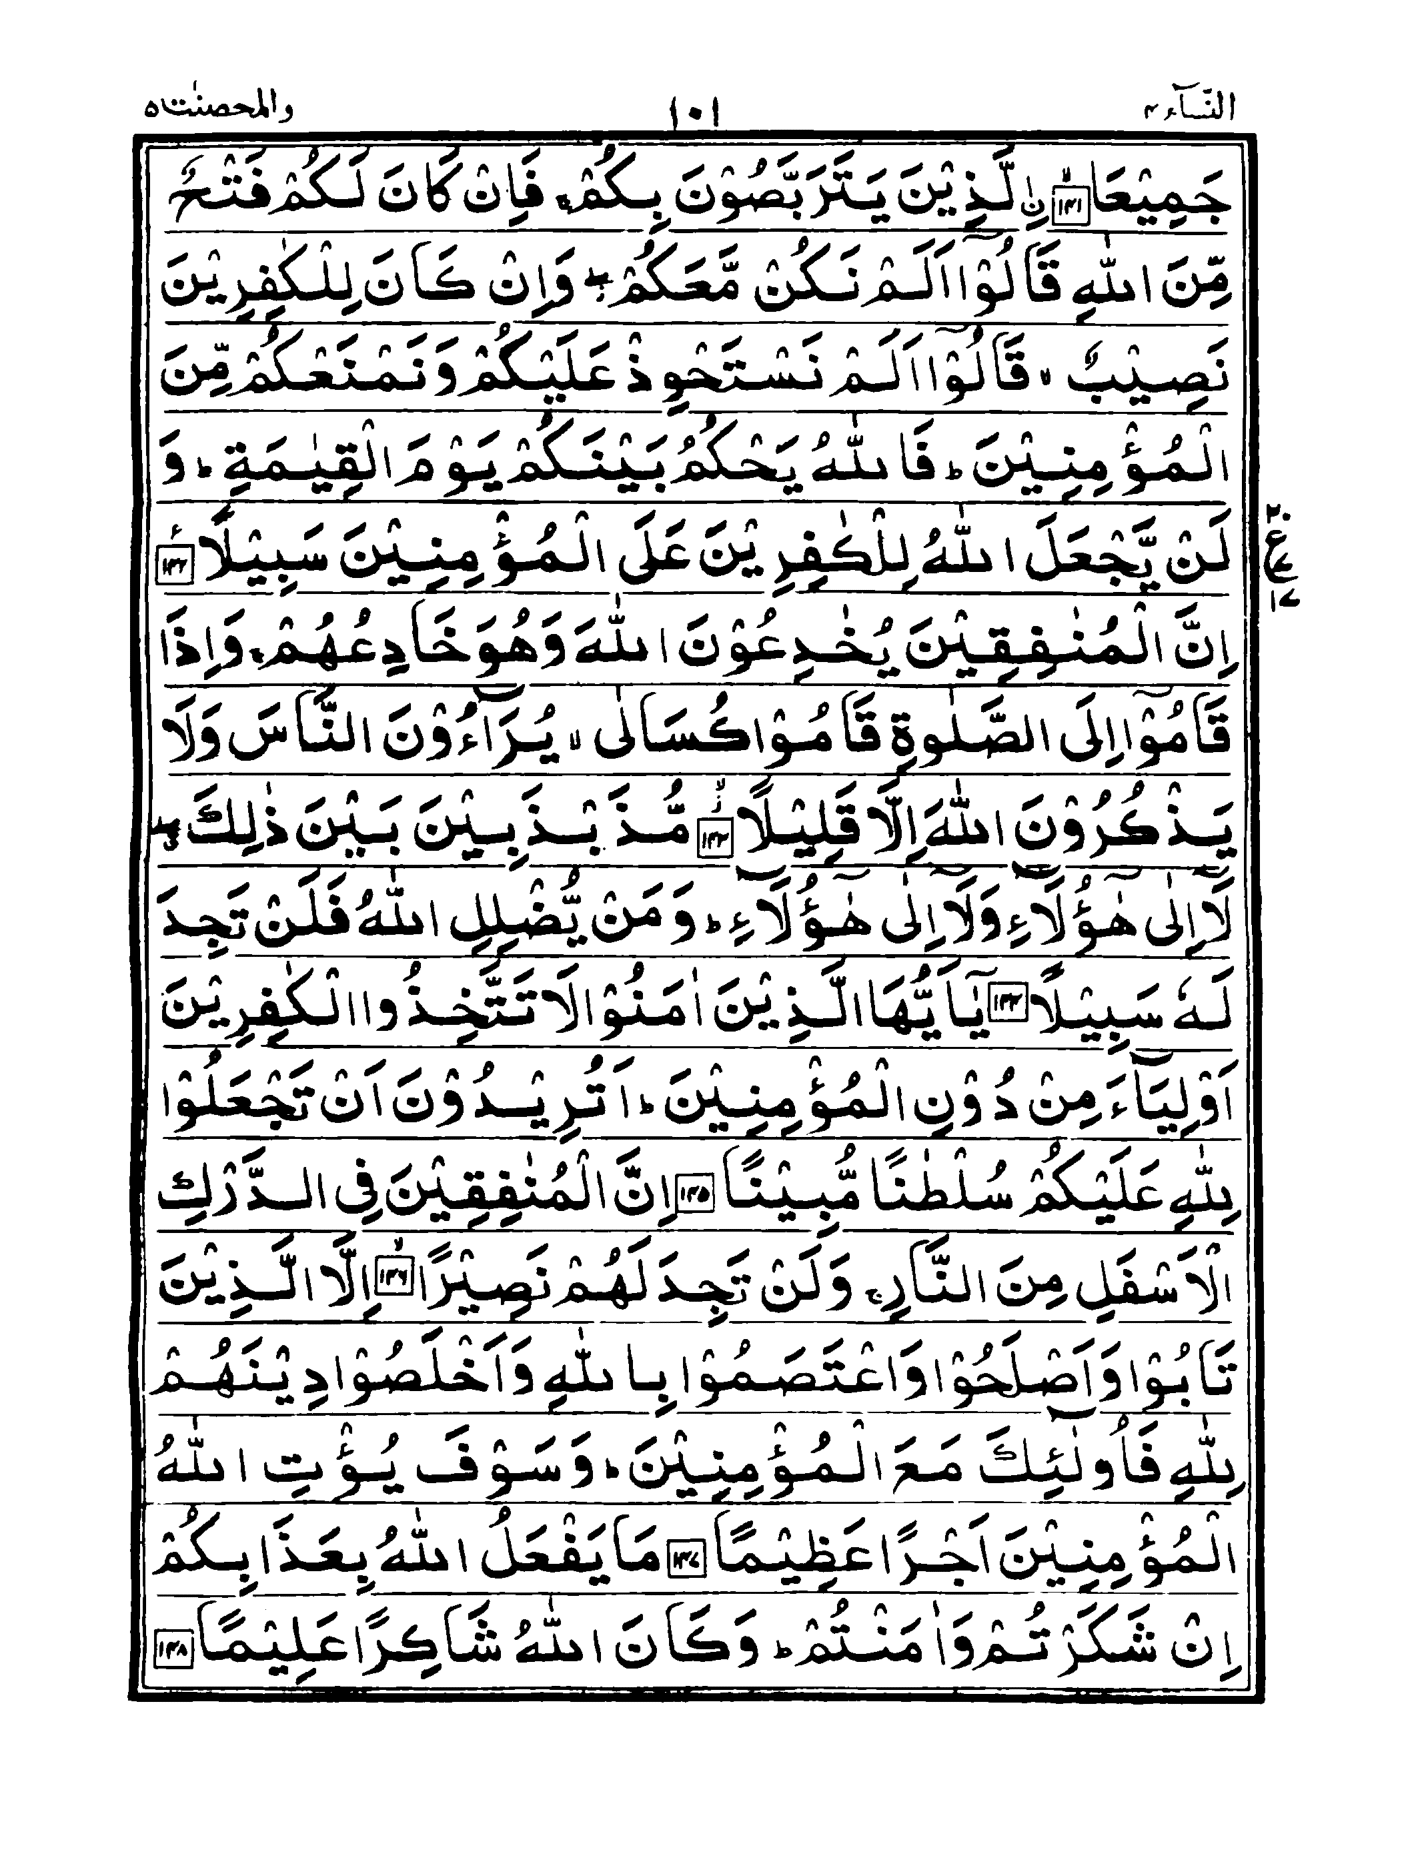 النّسآء ۴
۱۰۱
والمحصنٰت ۵
جَمِيْعَاۙ ۱۴۱ ۨالَّذِيْنَ يَتَرَبَّصُوْنَ بِكُمْ ۚ فَاِنْ كَانَ لَكُمْ فَتْحٌ
مِّنَ اللّٰهِ قَالُوْٓا اَلَمْ نَكُنْ مَّعَكُمْ ۖ وَاِنْ كَانَ لِلْكٰفِرِيْنَ
نَصِيْبٌ ۙ قَالُوْٓا اَلَمْ نَسْتَحْوِذْ عَلَيْكُمْ وَنَمْنَعْكُمْ مِّنَ
الْمُؤْمِنِيْنَ ؕ فَاللّٰهُ يَحْكُمُ بَيْنَكُمْ يَوْمَ الْقِيٰمَةِ ؕ وَ
لَنْ يَّجْعَلَ اللّٰهُ لِلْكٰفِرِيْنَ عَلَى الْمُؤْمِنِيْنَ سَبِيْلًا ۱۴۲
۲۰
ع
۷
۱۷
اِنَّ الْمُنٰفِقِيْنَ يُخٰدِعُوْنَ اللّٰهَ وَهُوَ خَادِعُهُمْ ۚ وَاِذَا
قَامُوْٓا اِلَى الصَّلٰوةِ قَامُوْا كُسَالٰى ۙ يُرَآءُوْنَ النَّاسَ وَلَا
يَذْكُرُوْنَ اللّٰهَ اِلَّا قَلِيْلًا ۙ ۱۴۳ مُّذَبْذَبِيْنَ بَيْنَ ذٰلِكَ ۖ
لَآ اِلٰى هٰٓؤُلَآءِ وَلَآ اِلٰى هٰٓؤُلَآءِ ؕ وَمَنْ يُّضْلِلِ اللّٰهُ فَلَنْ تَجِدَ
لَهٗ سَبِيْلًا ۱۴۴ يٰٓاَيُّهَا الَّذِيْنَ اٰمَنُوْا لَا تَتَّخِذُوا الْكٰفِرِيْنَ
اَوْلِيَآءَ مِنْ دُوْنِ الْمُؤْمِنِيْنَ ؕ اَتُرِيْدُوْنَ اَنْ تَجْعَلُوْا
لِلّٰهِ عَلَيْكُمْ سُلْطٰنًا مُّبِيْنًا ۱۴۵ اِنَّ الْمُنٰفِقِيْنَ فِى الدَّرْكِ
الْاَسْفَلِ مِنَ النَّارِ ۚ وَلَنْ تَجِدَ لَهُمْ نَصِيْرًا ۙ ۱۴۶ اِلَّا الَّذِيْنَ
تَابُوْا وَاَصْلَحُوْا وَاعْتَصَمُوْا بِاللّٰهِ وَاَخْلَصُوْا دِيْنَهُمْ
لِلّٰهِ فَاُولٰٓئِكَ مَعَ الْمُؤْمِنِيْنَ ؕ وَسَوْفَ يُؤْتِ اللّٰهُ
الْمُؤْمِنِيْنَ اَجْرًا عَظِيْمًا ۱۴۷ مَا يَفْعَلُ اللّٰهُ بِعَذَابِكُمْ
اِنْ شَكَرْتُمْ وَاٰمَنْتُمْ ؕ وَكَانَ اللّٰهُ شَاكِرًا عَلِيْمًا ۱۴۸